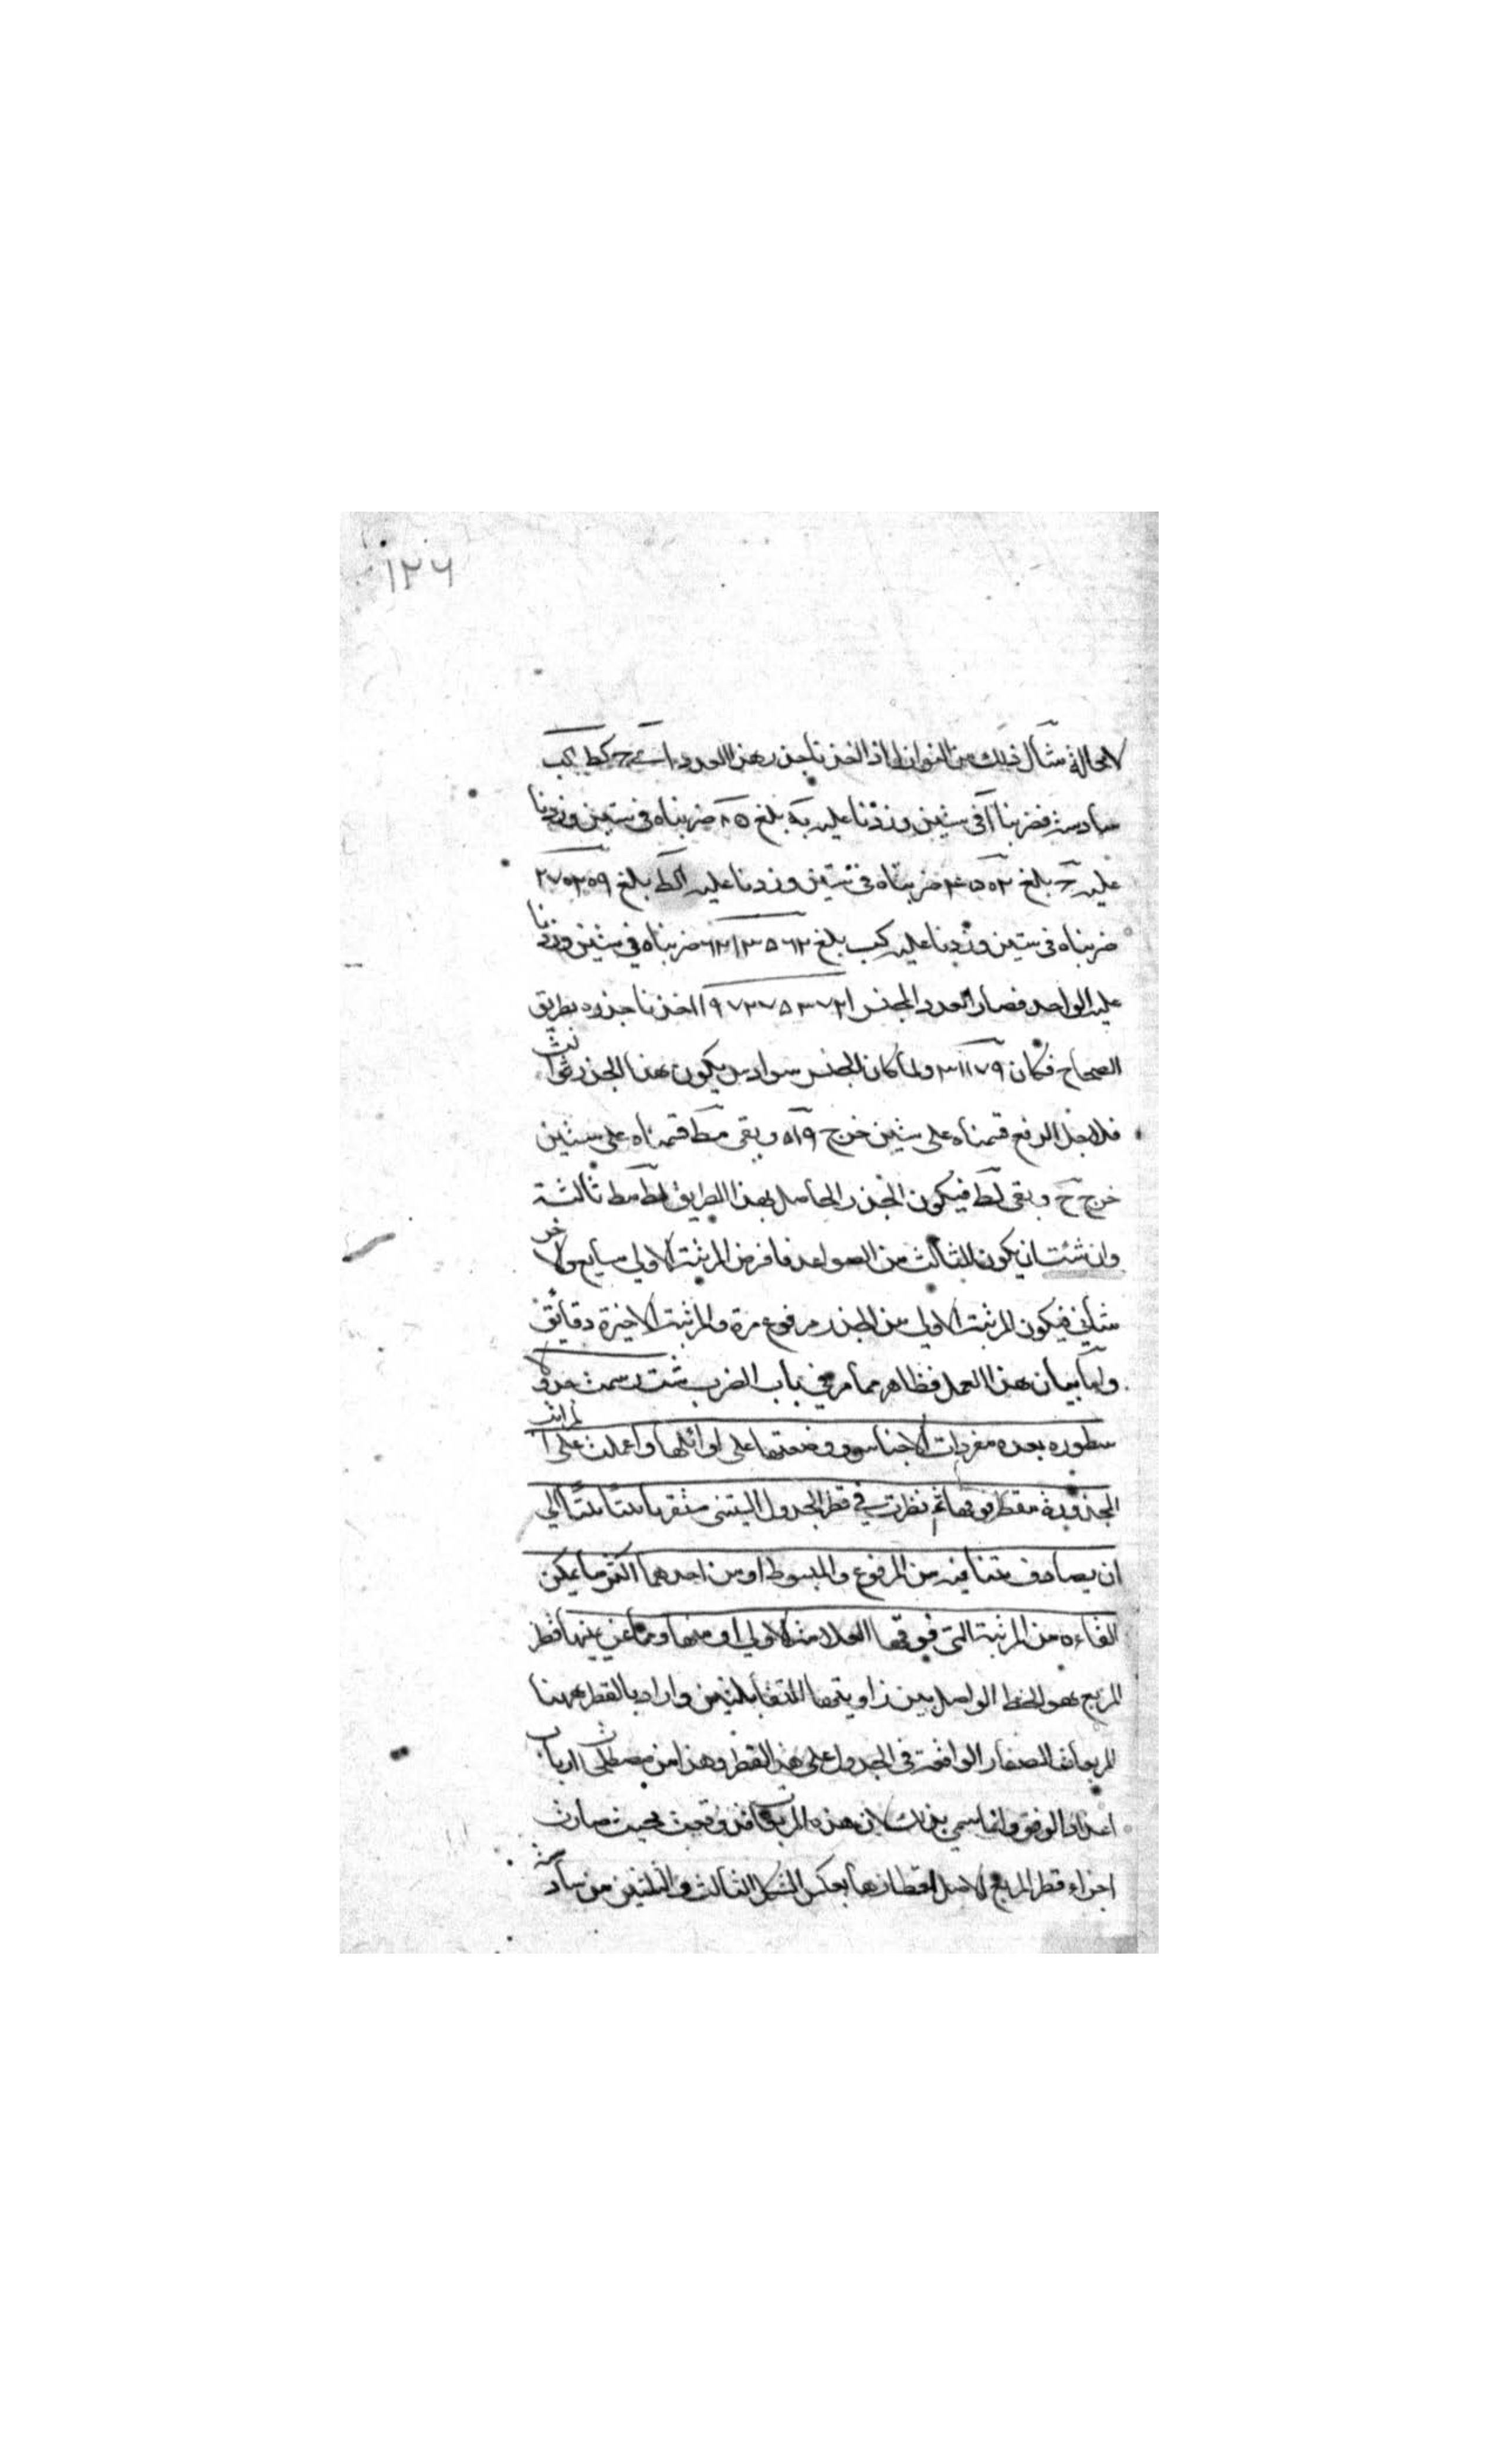 ١٢٦
لا محالة مثال ذلك من الثواني اذا اخذنا جذر هذا العدد
سادسة فضربنا ا في ستين وزدنا عليه كه بلغ ٨٥ ضربناه في ستين وزدنا
عليه بلغ ضربناه في ستين وزدنا عليه بلغ
ضربناه في ستين وزدنا عليه كب بلغ ضربناه في ستين وزدنا
عليه الواحد فصار العدد المجنس اخذنا جذره بطريق
الصحاح فكان ٣١١٧٩ ولما كان المجنس سوادس يكون هذا الجذر ثوالث
فلاجل الرفع قسمناه على ستين خرج ٥١٩ وبقى لط قسمناه على ستين
خرج ح وبقى لط فيكون الجذر الحاصل بهذا الطريق ثالثة
وان شئت ان يكون المثال من الصواعد فافرض المرتبة الاولى والاخر
ثواني فيكون المرتبة الاولى من الجذر مرفوع مرة والمرتبة الاخيرة دقايق
واما بيان هذا العمل فظاهر مما مر في باب الضرب رسمت جدولا
سطوره بعده مفردات الاجناس ووضعتها على اوائلها واعملت على المراتب
المجذورة نقط فوقها ثم نظرت في قطر الجدول الستيني متقهرا بيتا بيتا الى
ان يصادف بيتا فيه من المرفوع والمبسوط او من احدهما اكثر ما يمكن
القاءه من المرتبة التي فوقها العلامة الاولى او منها ومما عن يمينها قطر
المربع هو الخط الواصل بين زاويتيها المتقابلتين واراد بالقطر ههنا
المربعات الصغار الواقعة في الجدول على هذا القطر وهذا من مصطلحات ارباب
اعداد الوفق وانما سمي بذلك لان هذه المربعات قد وقعت بحيث صارت
اجزاء قطر المربع الاصل اقطارها بعكس الشكل الثالث والثلثين من سادسة